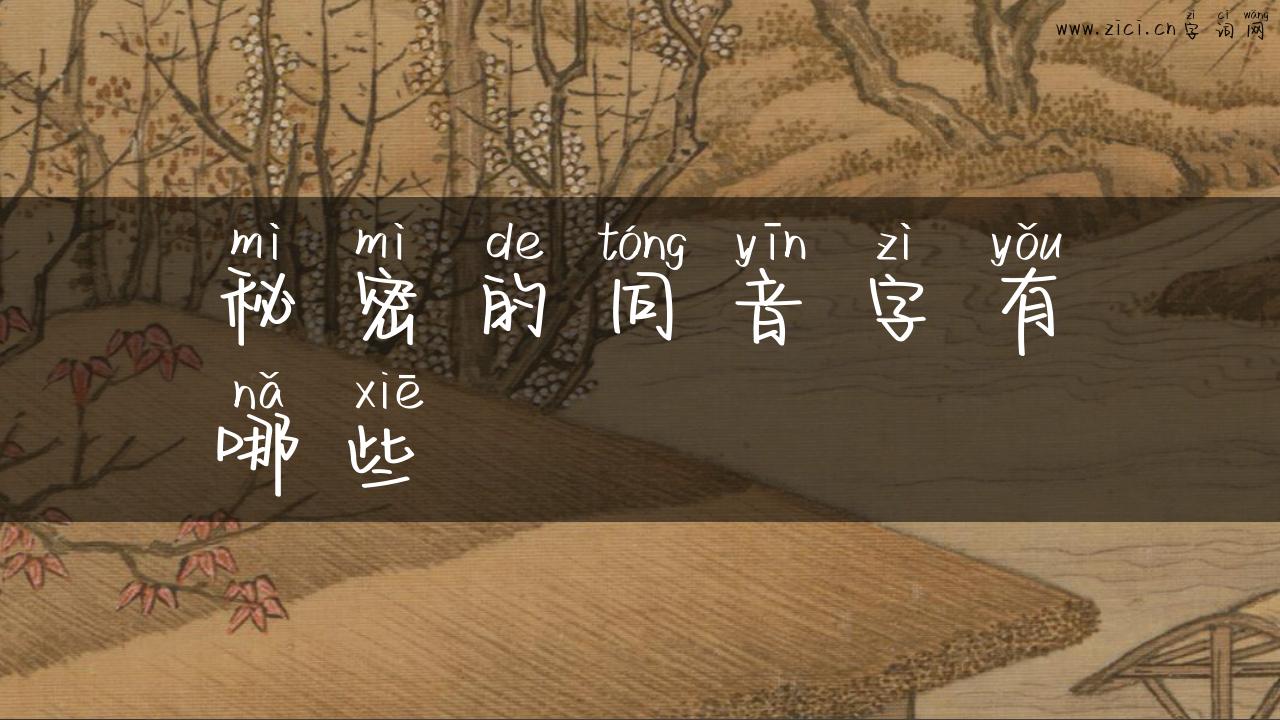 zì cí wǎng
www.zici.cn字词网
mì mì de tóng yīn zì yǒu
秘密的同音字有
nǎ xiē
哪些